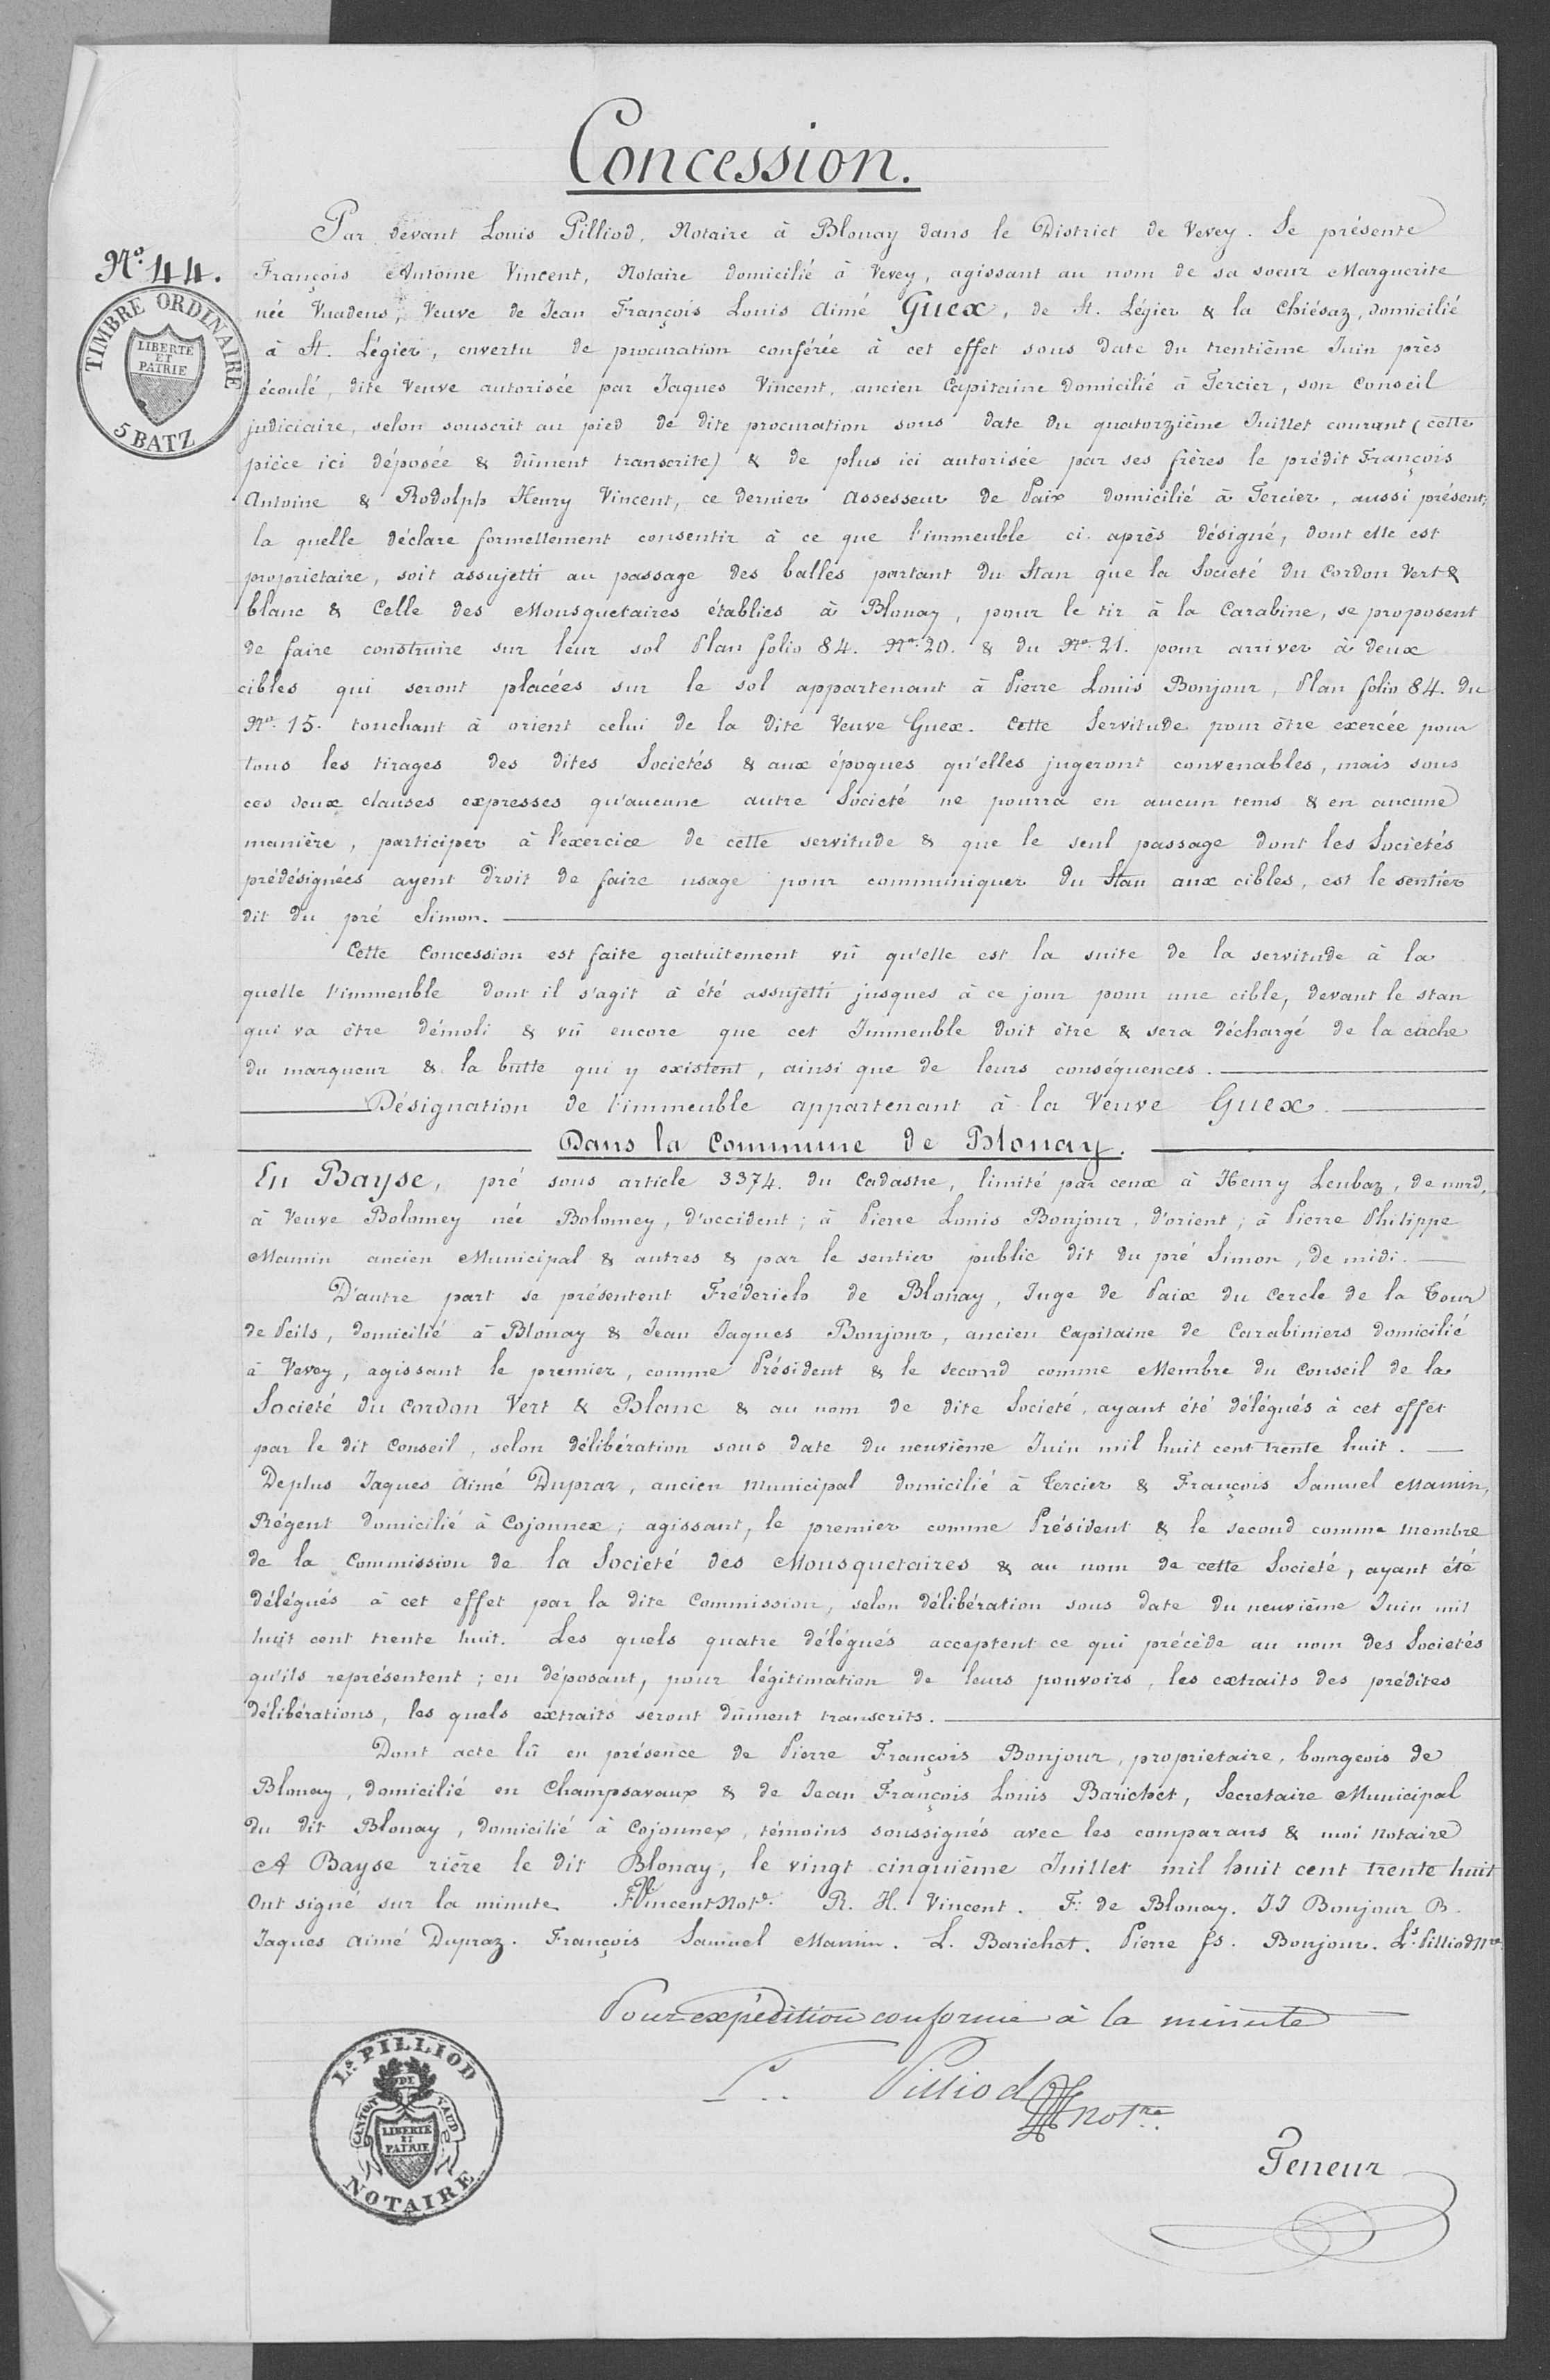 Concession.
Par devant Louis Pilliod, Notaire à Blonay dans le District de Vevey. Se présente
N.o 44.
François Antoine Vincent, Notaire domicilié à Vevey, agissant au nom de sa soeur Marguerite
TIMBRE ORDINAIRE
LIBERTÉ
ET
PATRIE
5 BATZ
née Vuadens, Veuve de Jean François Louis Aimé Guex, de St. Légier & la Chiésaz, domicilié
à St. Légier, envertu de procuration conférée à cet effet sous date du trentième Juin près
écoulé, dite veuve autorisée par Jaques Vincent, ancien Capitaine domicilié à Tercier, son Conseil
judiciaire, selon souscrit au pied de dite procuration sous date du quatorzième Juillet courant (cette
pièce ici déposée & dûment transcrite) & de plus ici autorisée par ses frères le prédit François
Antoine & Rodolph Henry Vincent, ce dernier Assesseur de Paix domicilié à Tercier, aussi présent;
la quelle déclare formellement consentir à ce que l'immeuble ci-après désigné, dont elle est
proprietaire, soit assujetti au passage des balles partant du Stan que la Societé du Cordon Vert &
blanc & Celle des Mousquetaires établies à Blonay, pour le tir à la Carabine, se proposent
de faire construire sur leur sol Plan folio 84. No. 20. & du No. 21. pour arriver à deux
cibles qui seront placées sur le sol appartenant à Pierre Louis Bonjour, Plan folio 84. du
No. 15. touchant à orient celui de la dite Veuve Guex. Cette Servitude pour être exercée pour
tous les tirages des dites Societés & aux époques qu'elles jugeront convenables, mais sous
ces deux clauses expresses qu'aucune autre Societé ne pourra en aucun tems & en aucune
manière, participer à l'exercice de cette servitude & que le seul passage dont les Societés
prédésignées ayent droit de faire usage pour communiquer du Stan aux cibles, est le sentier
dit du pré Simon.
Cette Concession est faite gratuitement vû qu'elle est la suite de la servitude à la
quelle l'immeuble dont il s'agit à été assujetti jusques à ce jour pour une cible, devant le stan
qui va être démoli & vû encore que cet Immeuble doit être & sera déchargé de la cache
du marqueur & la butte qui y existent, ainsi que de leurs conséquences.
Désignation de l'immeuble appartenant à la Veuve Guex.
Dans la Commune de Blonay.
En Bayse, pré sous article 3374. du Cadastre, limité par ceux à Henry Leubaz, de nord,
à Veuve Bolomey née Bolomey, d'occident; à Pierre Louis Bonjour, d'orient; à Pierre Philippe
Mamin ancien Municipal & autres & par le sentier public dit du pré Simon, de midi.
D'autre part se présentent Fréderich de Blonay, Juge de Paix du Cercle de la Tour
de Peils, domicilié à Blonay & Jean Jaques Bonjour, ancien Capitaine de Carabiniers domicilié
à Vevey, agissant le premier, comme Président & le second comme Membre du Conseil de la
Societé du Cordon Vert & Blanc & au nom de dite Societé, ayant été délégués à cet effet
par le dit Conseil, selon délibération sous date du neuvième Juin mil huit cent trente huit.
Deplus Jaques Aimé Dupraz, ancien Municipal domicilié à Tercier & François Samuel Mamin,
Régent domicilié à Cojonnex; agissant, le premier comme Président & le second comme membre
de la Commission de la Societé des Mousquetaires & au nom de cette Societé, ayant été
délégués à cet effet par la dite Commission, selon délibération sous date du neuvième Juin mil
huit cent trente huit. Les quels quatre délégués acceptent ce qui précède au nom des Societés
qu'ils représentent; en déposant, pour légitimation de leurs pouvoirs, les extraits des prédites
délibérations, les quels extraits seront dûment transcrits.
Dont acte lû en présence de Pierre François Bonjour, proprietaire, bourgeois de
Blonay, domicilié en Champsavaux & de Jean François Louis Barichet, Secretaire Municipal
du dit Blonay, domicilié à Cojonnex, témoins soussignés avec les comparans & moi Notaire
A Bayse rière le dit Blonay, le vingt cinquième Juillet mil huit cent trente huit
Ont signé sur la minute Vincent Not.e R. H. Vincent. F: de Blonay. J J Bonjour B.
Jaques Aimé Dupraz. François Samuel Mamin. L. Barichet. Pierre fs. Bonjour. Ls. Pilliod Nre
Pour expédition conforme à la minute
Ls. PILLIOD
CANTON DE VAUD
LIBERTE
ET
PATRIE
NOTAIRE
L.. Pilliod not.re
Teneur